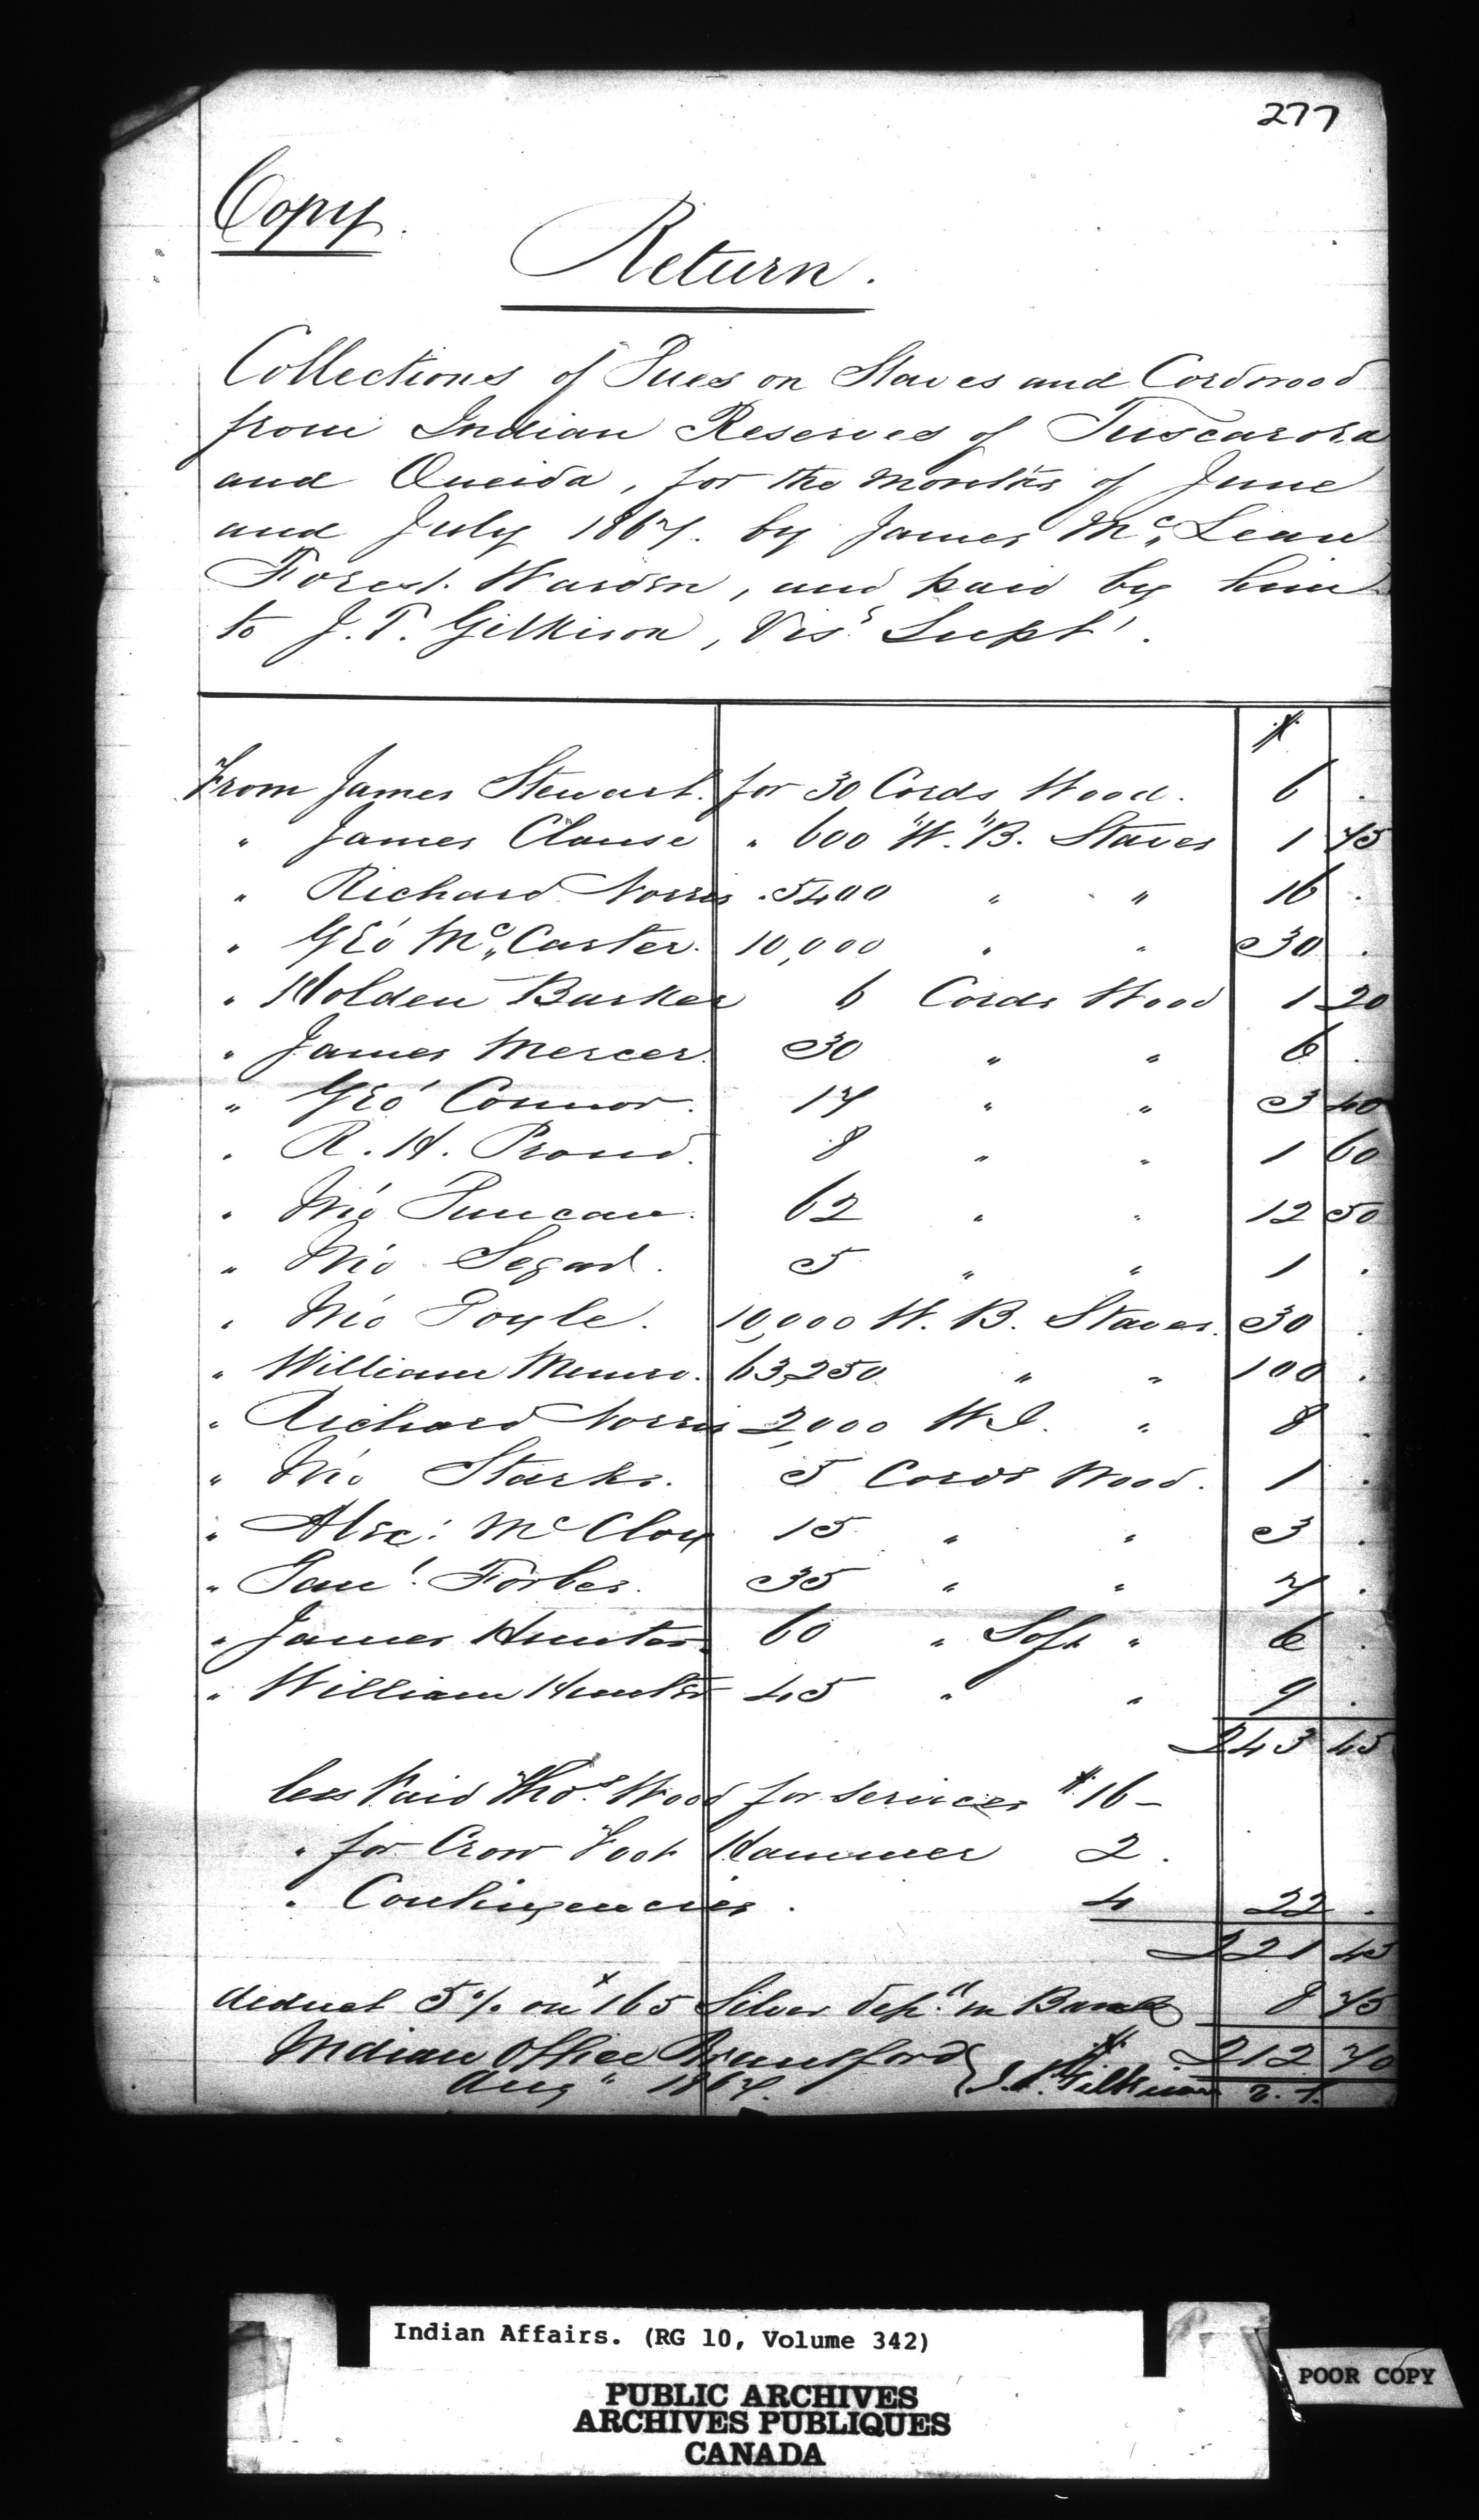 277
Copy.
Return.
Collections of Dues on Staves and Cordwood
from Indian Reserves of Tuscarora
and Oneida, for the months of June
and July 1867. by James Mc Lean
Forest Warden, and paid by him
to J. T. Gilkison, Vis. Supt.
$
From James Stewart. for 30 Cords Wood. 6 .
" James Clause " 600 "W." B. Staves 1 75
" Richard Norris . 5400 " " 16 .
" Geo Mc Carter. 10,000 " " 30 .
" Holden Barker 6 Cords Wood 1 20
" James Mercer. 30 " " 6 .
" Geo Connor. 17 " " 3 40
" R. H. Proud. 8 " " 1 60
" Wm Duncan. 62 " " 12 50
" Wm Segad. 5 " " 1 .
" Wm Doyle. 10,000 W. B. Staves. 30 .
" William Munro. 63,250 " " 100 .
" Richard Norris 2,000 W I. " 8 .
" Wm Starks. 5 Cords Wood. 1 .
" Alex: Mc Cloy 15 " " 3 .
" Forbes. 35 " " 7 .
" James Hunter. 60 " Soft " 6 .
" William Hunter 45 " " 9 .
243 45
less Paid Thos. Wood for services $16 –
" for Crow Foot Hammer 2 .
" Contingencies . 4 22 .
221 45
deduct 5 % on $165 Silver dep. in Bank 8 75
Indian Office Brantford $ 212 70
Aug 1867. J. T. Gilkison
Indian Affairs. (RG 10, Volume 342)
PUBLIC ARCHIVES
ARCHIVES PUBLIQUES
CANADA
POOR COPY